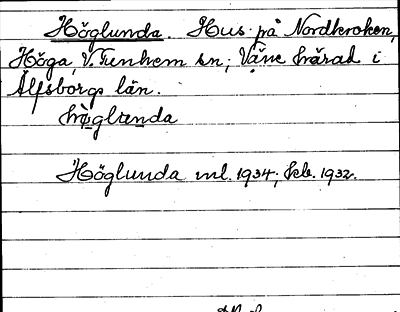 Höglunda. Hus på Nordkroken,
Höga, V. Tunhem sn; Väne härad i
Älfsborgs län.
Höglunda ml. 1934; kb. 1932.